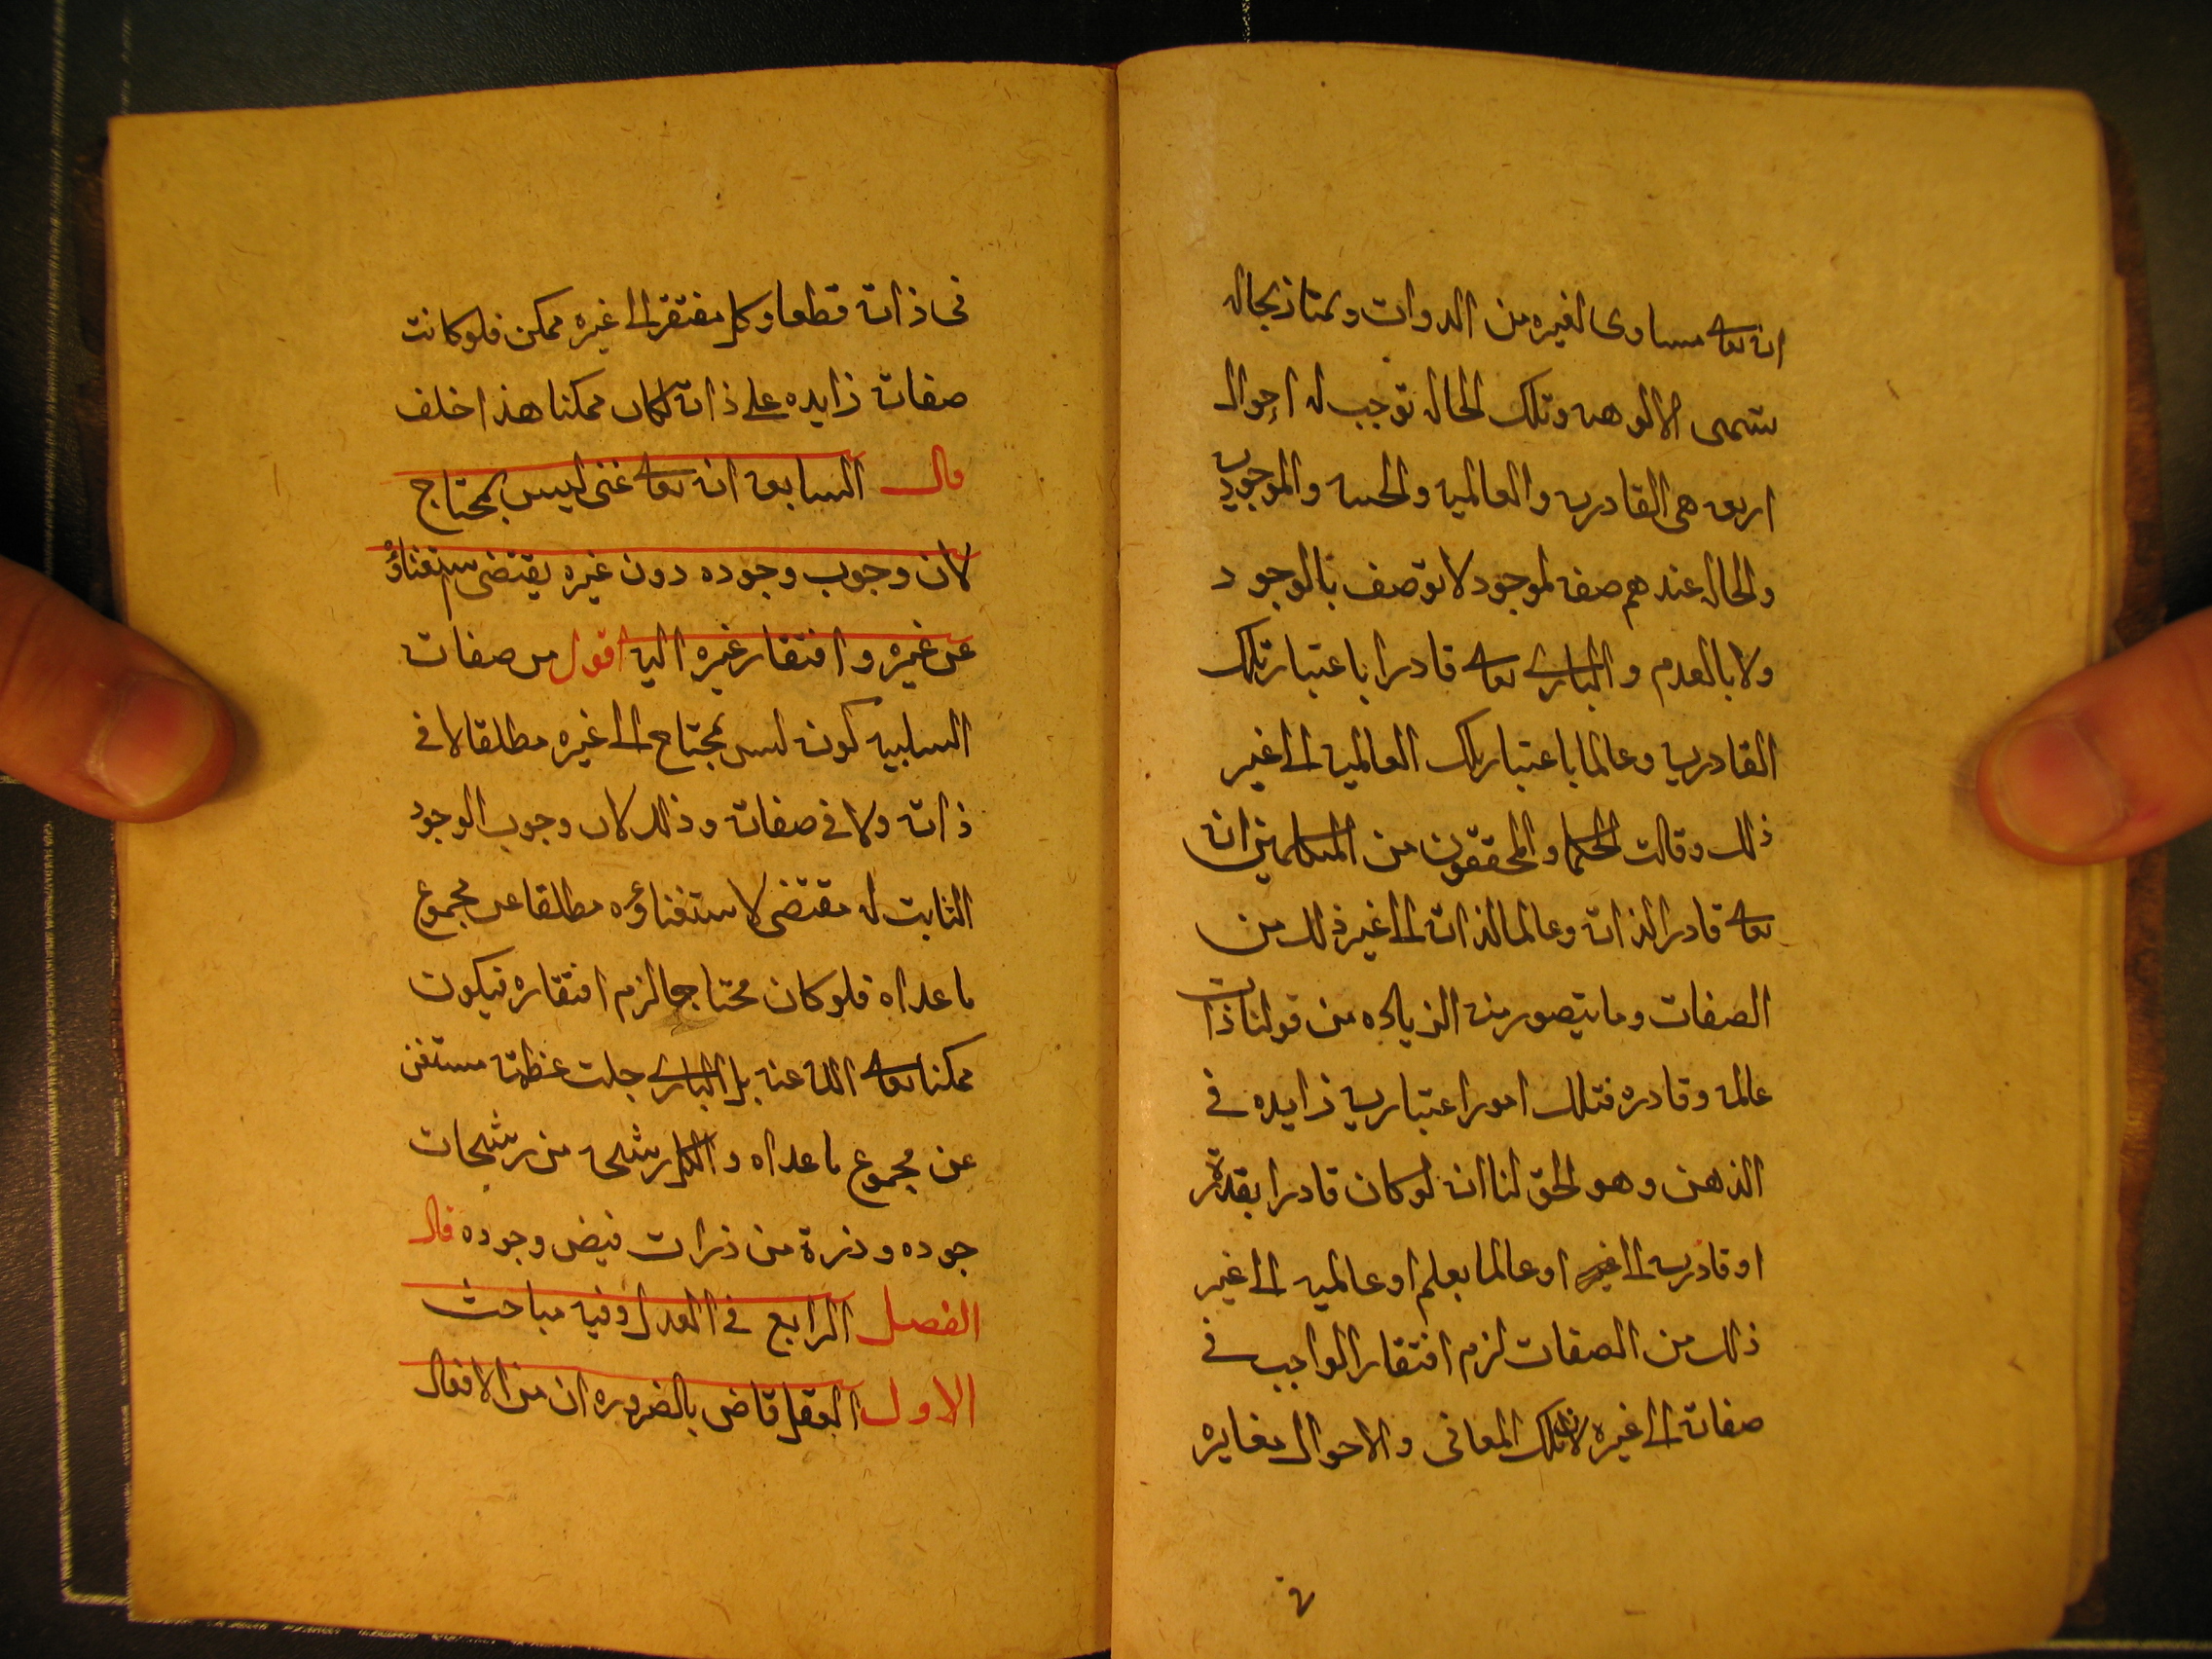 انه تعالى مساوى لغيره من الدوات ويمتاز بحاله
تسمى الالوهيه وتلك الحاله توجب له احوال
اربعه هى القادريه والعالميه والحييه والموجوديه
والحال عندهم صفه لموجود لا توصف بالوجود
ولا بالعدم والبارى تعالى قادرا باعتبار تلك
القادريه وعالما باعتبار تلك العالميه الى غير
ذلك وقالت الحكما والمحققون من المتكلمين انه
تعالى قادر الذاته وعالما لذاته الى غير ذلك من
الصفات وما يتصور منه الزياده من قولنا ذات
عالمه وقادره فتلك امور اعتباريه زايده فى
الذهن وهو الحق لنا انه لو كان قادرا بقدرة
او قادريه الى غير او عالما بعلم او عالميه الى غير
ذلك من الصفات لزم افتقار الواجب فى
صفاته الى غيره لان تلك المعانى والاحوال مغايره
فى ذاته قطعا وكل مفتقر الى غيره ممكن فلو كانت
صفاته زايده على ذاته لكان ممكنا هذا خلف
قال السابعه انه تعالى غنى ليس بمحتاج
لان وجوب وجوده دون غيره يقتضى استغناؤه
عن غيره وافتقار غيره اليه اقول من صفات
السلبيه كونه ليس بمحتاج الى غيره مطلقا لا فى
ذاته ولا فى صفاته وذلك لان وجوب الوجود
الثابت له مقتضى لاستغناؤه مطلقا عن مجموع
ما عداه فلو كان محتاجا لزم افتقاره فيكون
ممكنا تعالى الله عنه بل البارى جلت عظمته مستغن
عن مجموع ما عداه والكل رشحه من رشحات
جوده وذرة من ذرات فيض وجوده قال
الفصل الرابع فى العدل وفيه مباحث
الاول العقل قاض بالضروره ان من الافعال